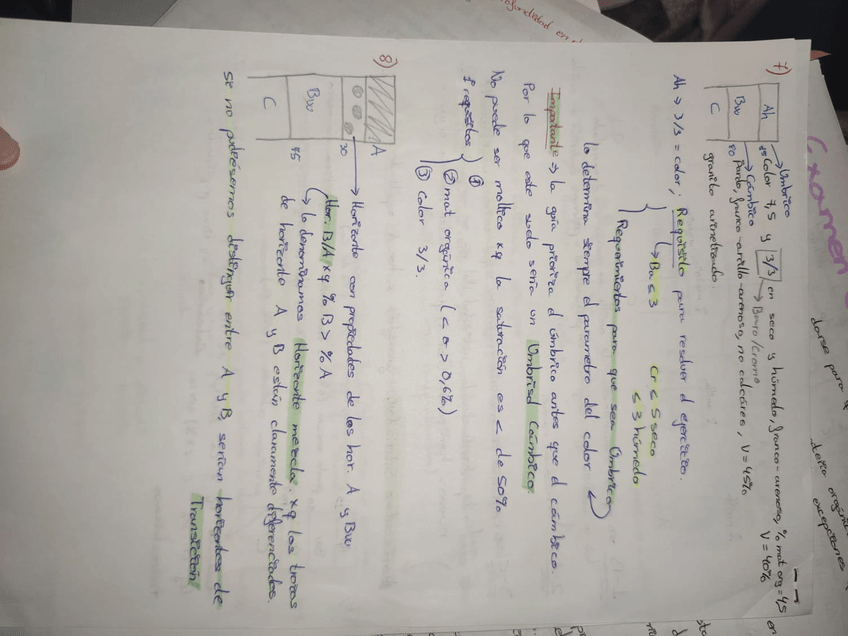 Examen
7)
Ah
Bw
C
Úmbrico
25 Color 7,5 y 3/3 en seco y húmedo, franco-arenoso, % mat org = 4,5
V = 40%
Bw 10/croma
Cámbico
80 Pardo, franco-arcillo-arenoso, no calcáreo, V = 45%
granito
Ah → 3/3 = color; Requisito para resolver el ejercicio.
→ Bu ≤ 3 Cr ≤ 5 seco
≤ 3 húmedo
Requerimientos para que sea Úmbrico
lo determina siempre el parametro del color
Importante → la guía prioriza el úmbrico antes que el cámbico.
Por lo que este suelo sería un Umbrisol Cámbico.
No puede ser mollico xq la saturación es < de 50%
requisitos
①
② mat orgánica (< o > 0,6%)
③ Color 3/3.
8)
A
Bw
C
30
75
→ Horizonte con propiedades de los hor. A y Bw
(Hor. B/A xq % B > % A
→ lo denominamos Horizonte mezcla. xq los trozos
de horizonte A y B están claramente diferenciados.
si no pudiésemos distinguir entre A y B, serían horizontes de
Transición